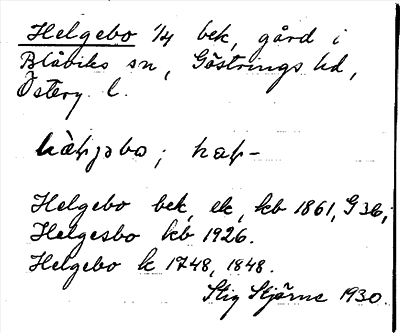 Helgebo 1/4 bek, gård i
Blåviks sn, Göstrings hd,
Österg. l.
bek, ek, kb 1861, G 36;
Helgesbo kb 1926.
Helgebo k 1748, 1848.
Stig Stjärne 1930.